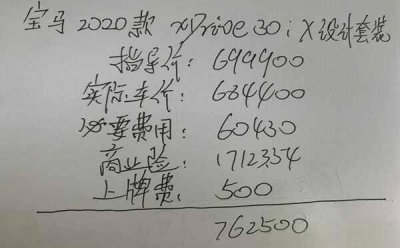 宝马2020款 xDrive30i X设计套装
指导价: 699900
实际车价: 684400
必要费用: 60430
商业险: 17123.54
上牌费: 500
762500